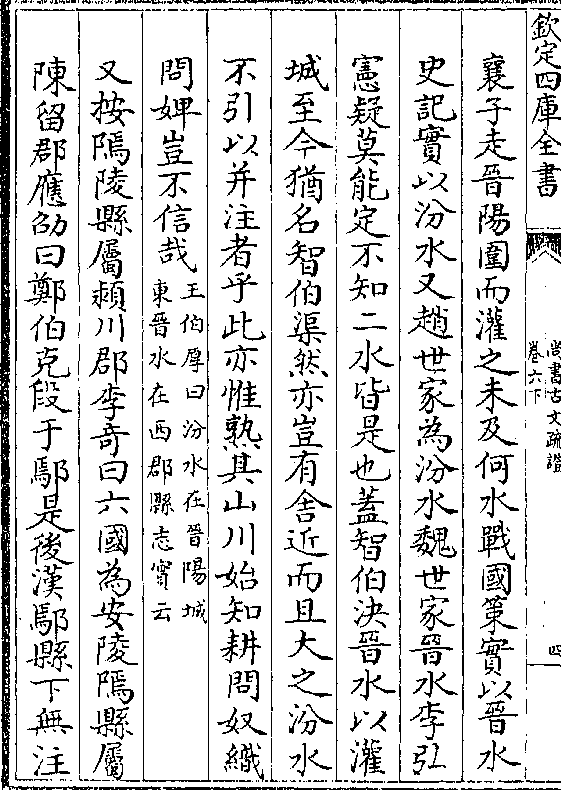 欽定四庫全書
尚書古文疏證
卷六下
四
襄子走晉陽圍而灌之未及何水戰國策實以晉水
史記實以汾水又趙世家為汾水魏世家晉水李弘
憲疑莫能定不知二水皆是也蓋智伯決晉水以灌
城至今猶名智伯渠然亦豈有舍近而且大之汾水
不引以并注者乎此亦惟熟其山川始知耕問奴織
問婢豈不信哉
王伯厚曰汾水在晉陽城
東晉水在西郡縣志實云
又按隝陵縣屬潁川郡李奇曰六國為安陵隝縣屬
陳留郡應劭曰鄭伯克段于鄢是後漢鄢縣下無注